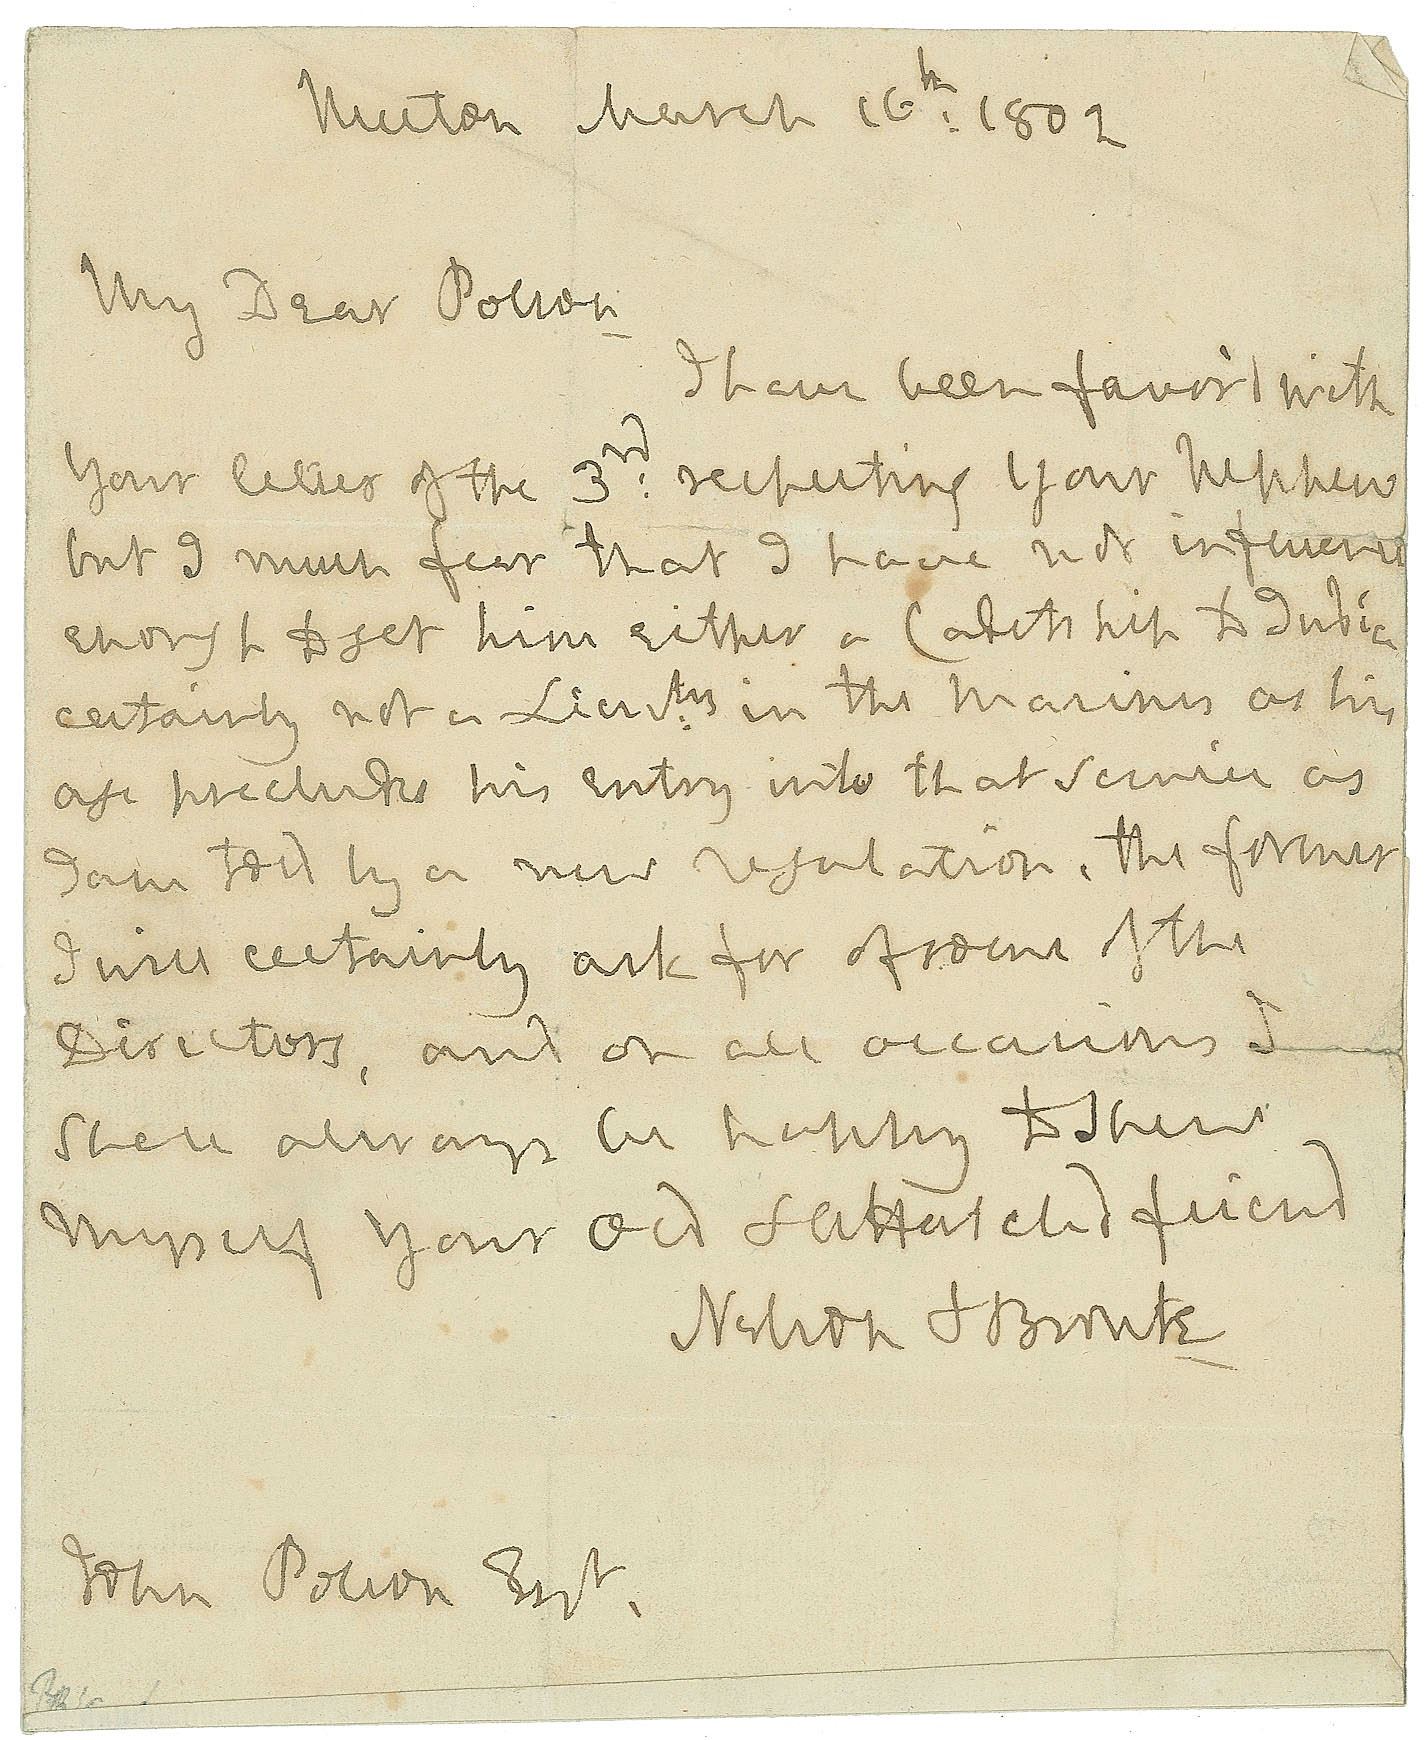 Merton March 16th: 1802
My Dear Polson
I have been favor'd with
Your letter of the 3rd: respecting Your Nephew
but I much fear that I have not influence
enough to get him either a Cadetship to India
certainly not a Lieuts: in the Marines as his
age precludes his entry into that Service as
I am told by a new regulation, the former
I will certainly ask for of some of the
Directors, and on all occasions I
shall always be happy to Shew
Myself Your Old & Attatched friend
Nelson & Bronte
John Polson Esqr.